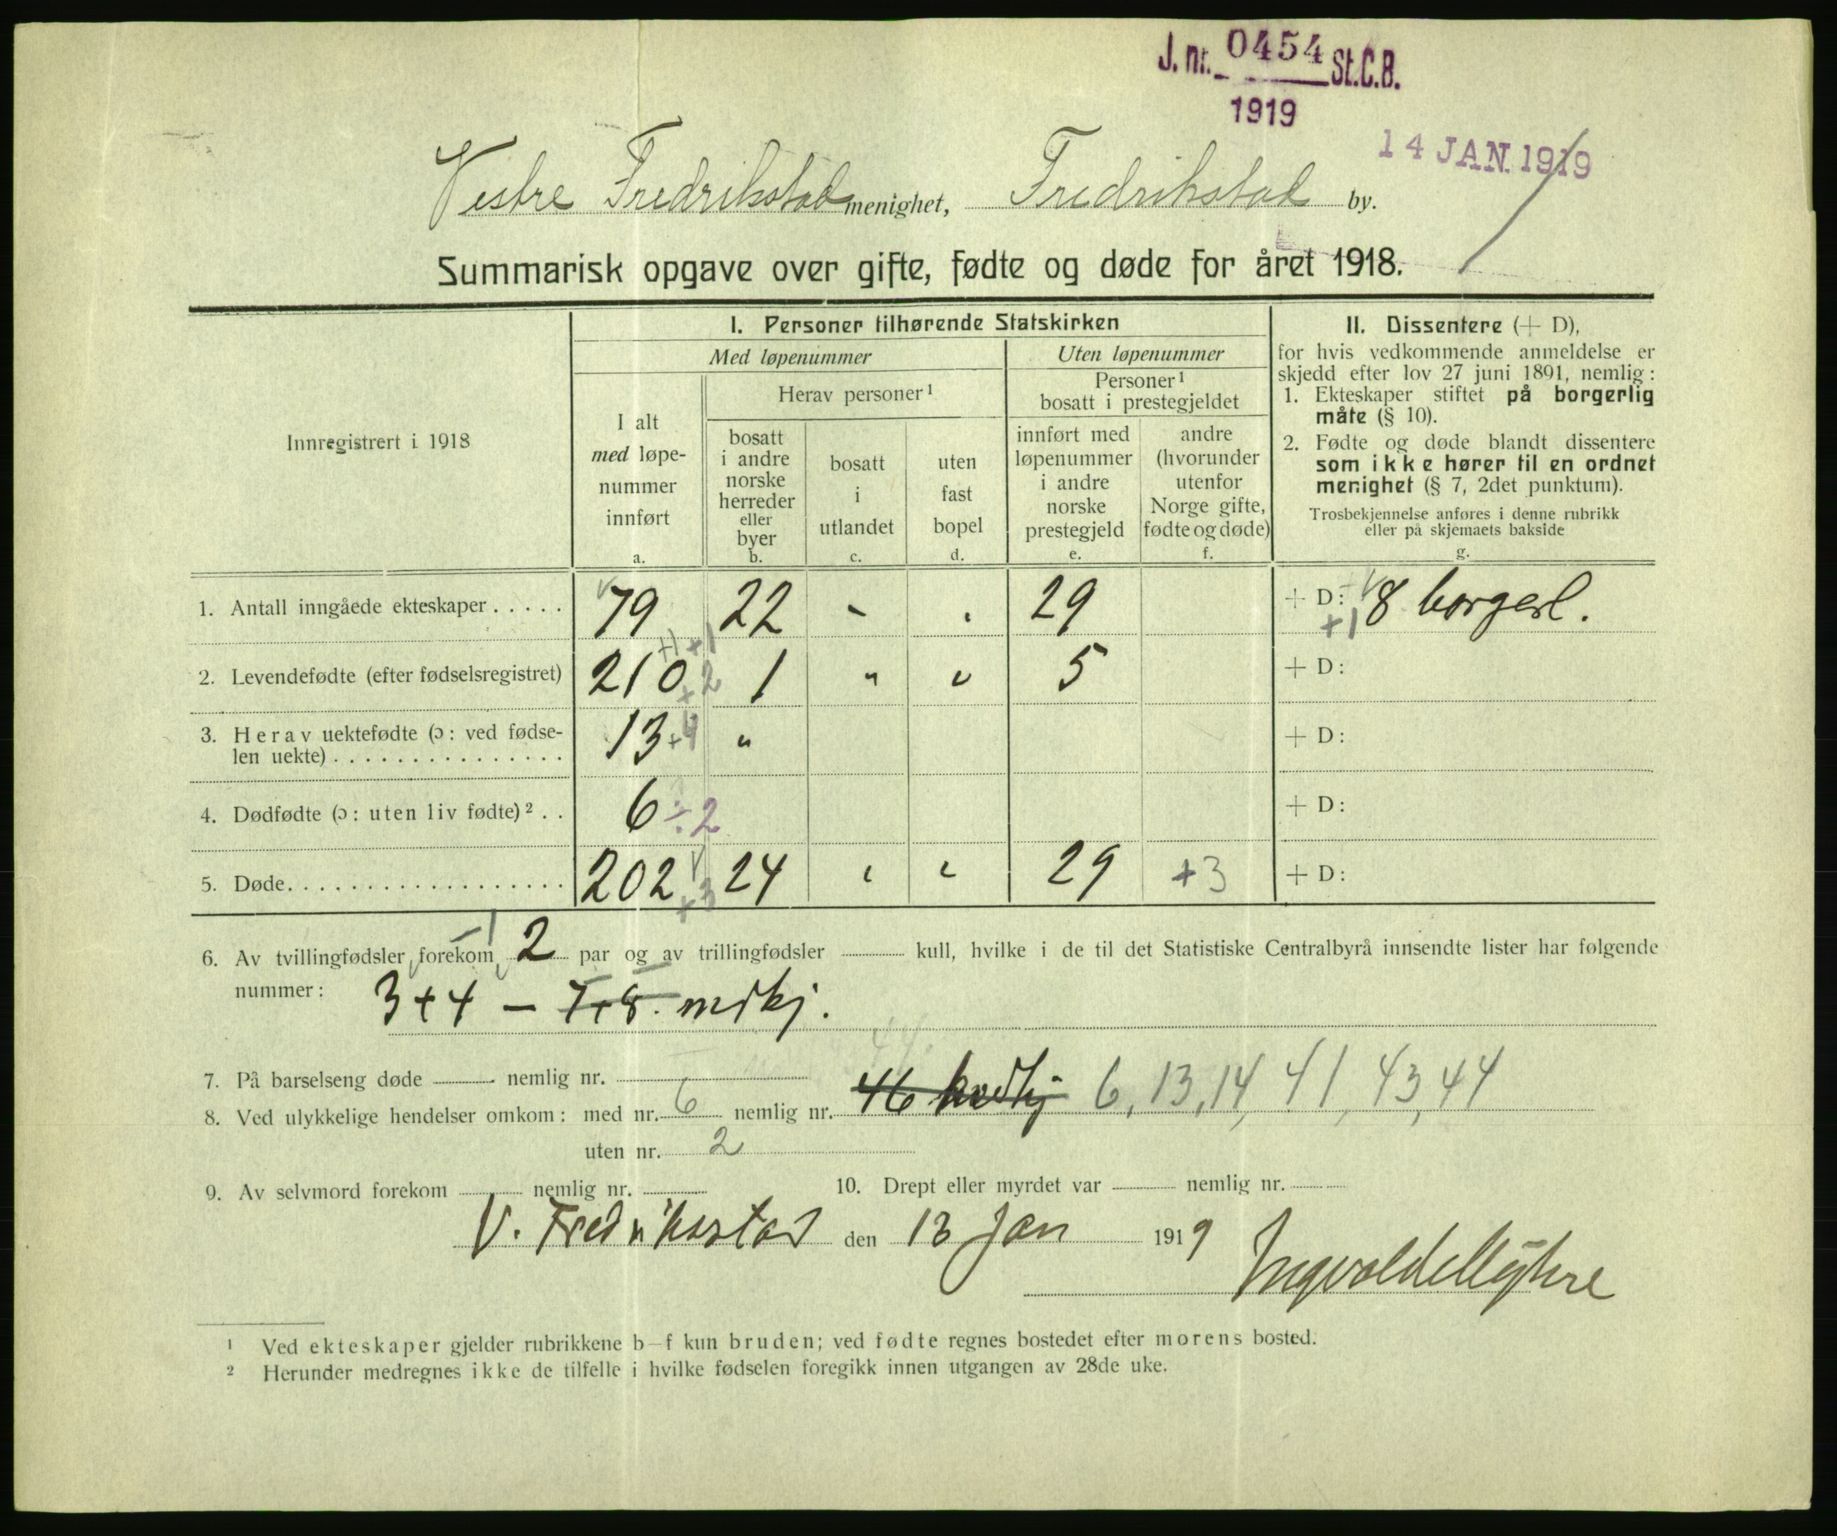 J. nr. 0454 St.C.B.
1919
14 JAN. 1919
Vestre Fredrikstad menighet, Fredrikstad by.
Summarisk opgave over gifte, fødte og døde for året 1918.
Innregistrert i 1918
I. Personer tilhørende Statskirken
Med løpenummer
Uten løpenummer
I alt
med løpe-
nummer
innført
a.
Herav personer ¹
bosatt
i andre
norske
herreder
eller
byer
b.
bosatt
i
utlandet
c.
uten
fast
bopel
d.
Personer ¹
bosatt i prestegjeldet
innført med
løpenummer
i andre
norske
prestegjeld
e.
andre
(hvorunder
utenfor
Norge gifte,
fødte og døde)
f.
II. Dissentere (+ D),
for hvis vedkommende anmeldelse er
skjedd efter lov 27 juni 1891, nemlig:
1. Ekteskaper stiftet på borgerlig
måte (§ 10).
2. Fødte og døde blandt dissentere
som ikke hører til en ordnet
menighet (§ 7, 2det punktum).
Trosbekjennelse anføres i denne rubrikk
eller på skjemaets bakside
g.
1. Antall inngåede ekteskaper..... 79 22 - 29 + D: 8 borgerl.
+1
+1 +1
2. Levendefødte (efter fødselsregistret) 210 +2 1 " " 5 + D:
3. Herav uektefødte (ɔ: ved fødse-
len uekte)............... 13 +4 " + D:
4. Dødfødte (ɔ: uten liv fødte) ² .. 6 ÷2 + D:
5. Døde.................. 202 +3 24 " " 29 +3 + D:
6. Av tvillingfødsler forekom 2 par og av trillingfødsler kull, hvilke i de til det Statistiske Centralbyrå innsendte lister har følgende
nummer: 3+4 — 7+8. mdkj.
7. På barselseng døde nemlig nr.
8. Ved ulykkelige hendelser omkom: med nr. 6 nemlig nr. 46 kvdkj 6, 13, 14, 41, 43, 44
uten nr. 2
9. Av selvmord forekom nemlig nr. 10. Drept eller myrdet var nemlig nr.
V. Fredrikstad den 13 Jan 1919
¹ Ved ekteskaper gjelder rubrikkene b—f kun bruden; ved fødte regnes bostedet efter morens bosted.
² Herunder medregnes ikke de tilfelle i hvilke fødselen foregikk innen utgangen av 28de uke.